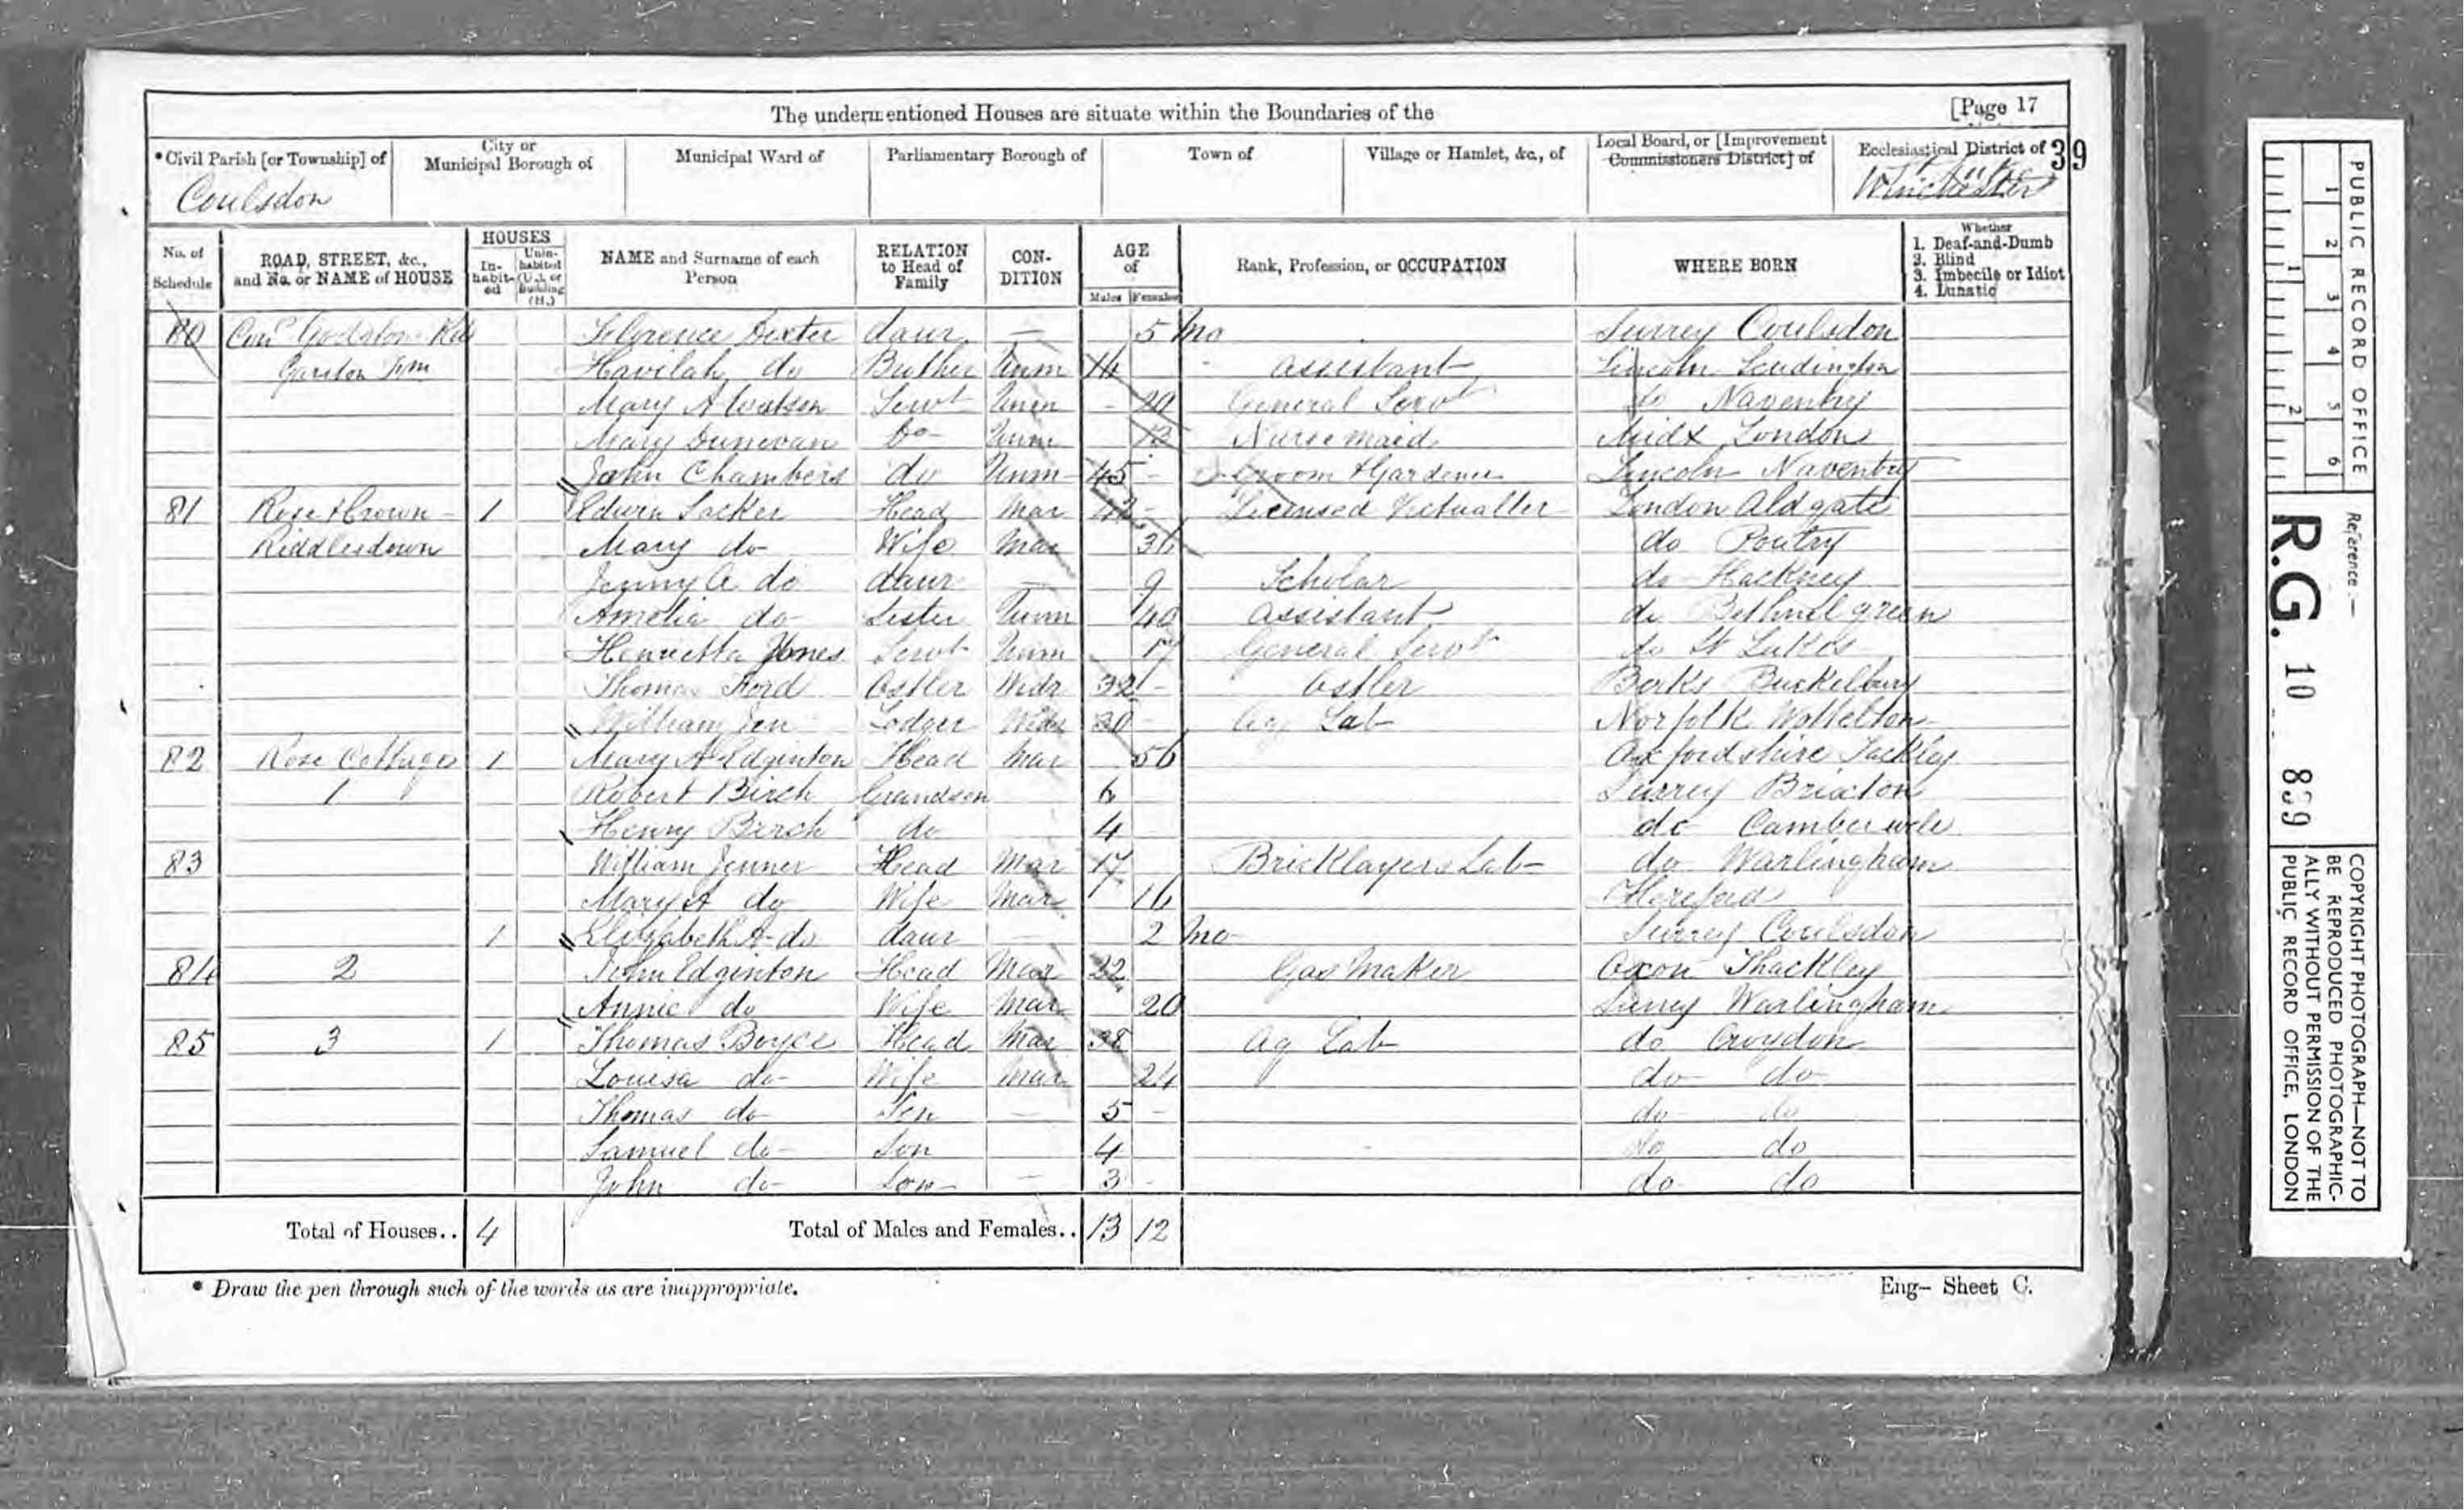 The undermentioned Houses are situate within the Boundaries of the [Page 17
*Civil Parish [or Township] of
City or Municipal Borough of
Municipal Ward of
Parliamentary Borough of
Town of
Village or Hamlet, &c., of
Local Board, or [Improvement Commissioners District] of
Ecclesiastical District of
39
Coulsdon
Winchester
No. of Schedule
ROAD, STREET, &c., and No. or NAME of HOUSE
HOUSES
Inhabited
Uninhabited (U.), or Building (B.)
NAME and Surname of each Person
RELATION to Head of Family
CONDITION
AGE of
Males Females
Rank, Profession, or OCCUPATION
WHERE BORN
Whether
1. Deaf-and-Dumb
2. Blind
3. Imbecile or Idiot
4. Lunatic
80 Godstone Rd Florence Dexter daur — 5 mo Surrey Coulsdon
Havilah do Brother Unm 14 assistant Lincoln
Mary A Watson Servt Unm 20 General Servt do Naventry
Mary Dunevan do Unm Nursemaid Midx London
John Chambers do Unm 45 Groom & Gardener Lincoln Naventry
81 Rose & Crown 1 Edwin Head Mar 42 Licensed Victualler London Aldgate
Riddlesdown Mary do Wife Mar 36 do Poultry
Jenny A do daur — 9 Scholar do Hackney
Amelia do Sister Unm 40 assistant do Bethnal green
Henrietta Jones Servt Unm 17 General Servt do St Lukes
Thomas Ford Ostler Widr 32 Ostler Berks Buckelbury
William Lodger 30 Ag Lab Norfolk
82 Rose Cottages 1 Mary A Edginton Head Mar 56 Oxfordshire Tackley
1 Robert Birch Grandson 6 Surrey Brixton
Henry Birch do 4 do Camberwell
83 William Jenner Head Mar 17 Bricklayers Lab do Warlingham
Mary A do Wife Mar 16 Hereford
1 Elizabeth A do daur — 2 mo Surrey Coulsdon
84 2 John Edginton Head Mar 22 Gas Maker Oxon Thackley
Annie do Wife Mar 20 Surrey Warlingham
85 3 1 Thomas Boyce Head Mar 38 Ag Lab do Croydon
Louisa do Wife Mar 24 do do
Thomas do Son — 5 do do
Samuel do Son 4 do do
John do Son — 3 do do
Total of Houses.. 4 Total of Males and Females.. 13 12
* Draw the pen through such of the words as are inappropriate.
Eng— Sheet C.
PUBLIC RECORD OFFICE
1 2 3 4 5 6
1 2
Reference:—
R.G. 10 839
COPYRIGHT PHOTOGRAPH—NOT TO
BE REPRODUCED PHOTOGRAPHIC-
ALLY WITHOUT PERMISSION OF THE
PUBLIC RECORD OFFICE, LONDON